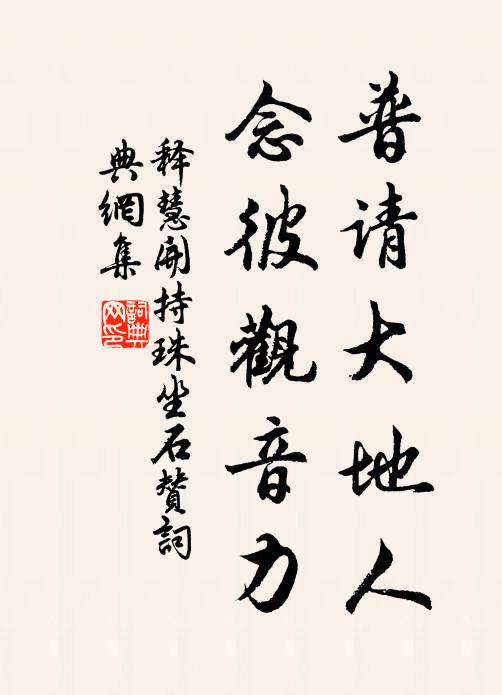 普请大地人
念彼觀音力
释慧開持珠坐石赞詞
典網集
詞典
网印